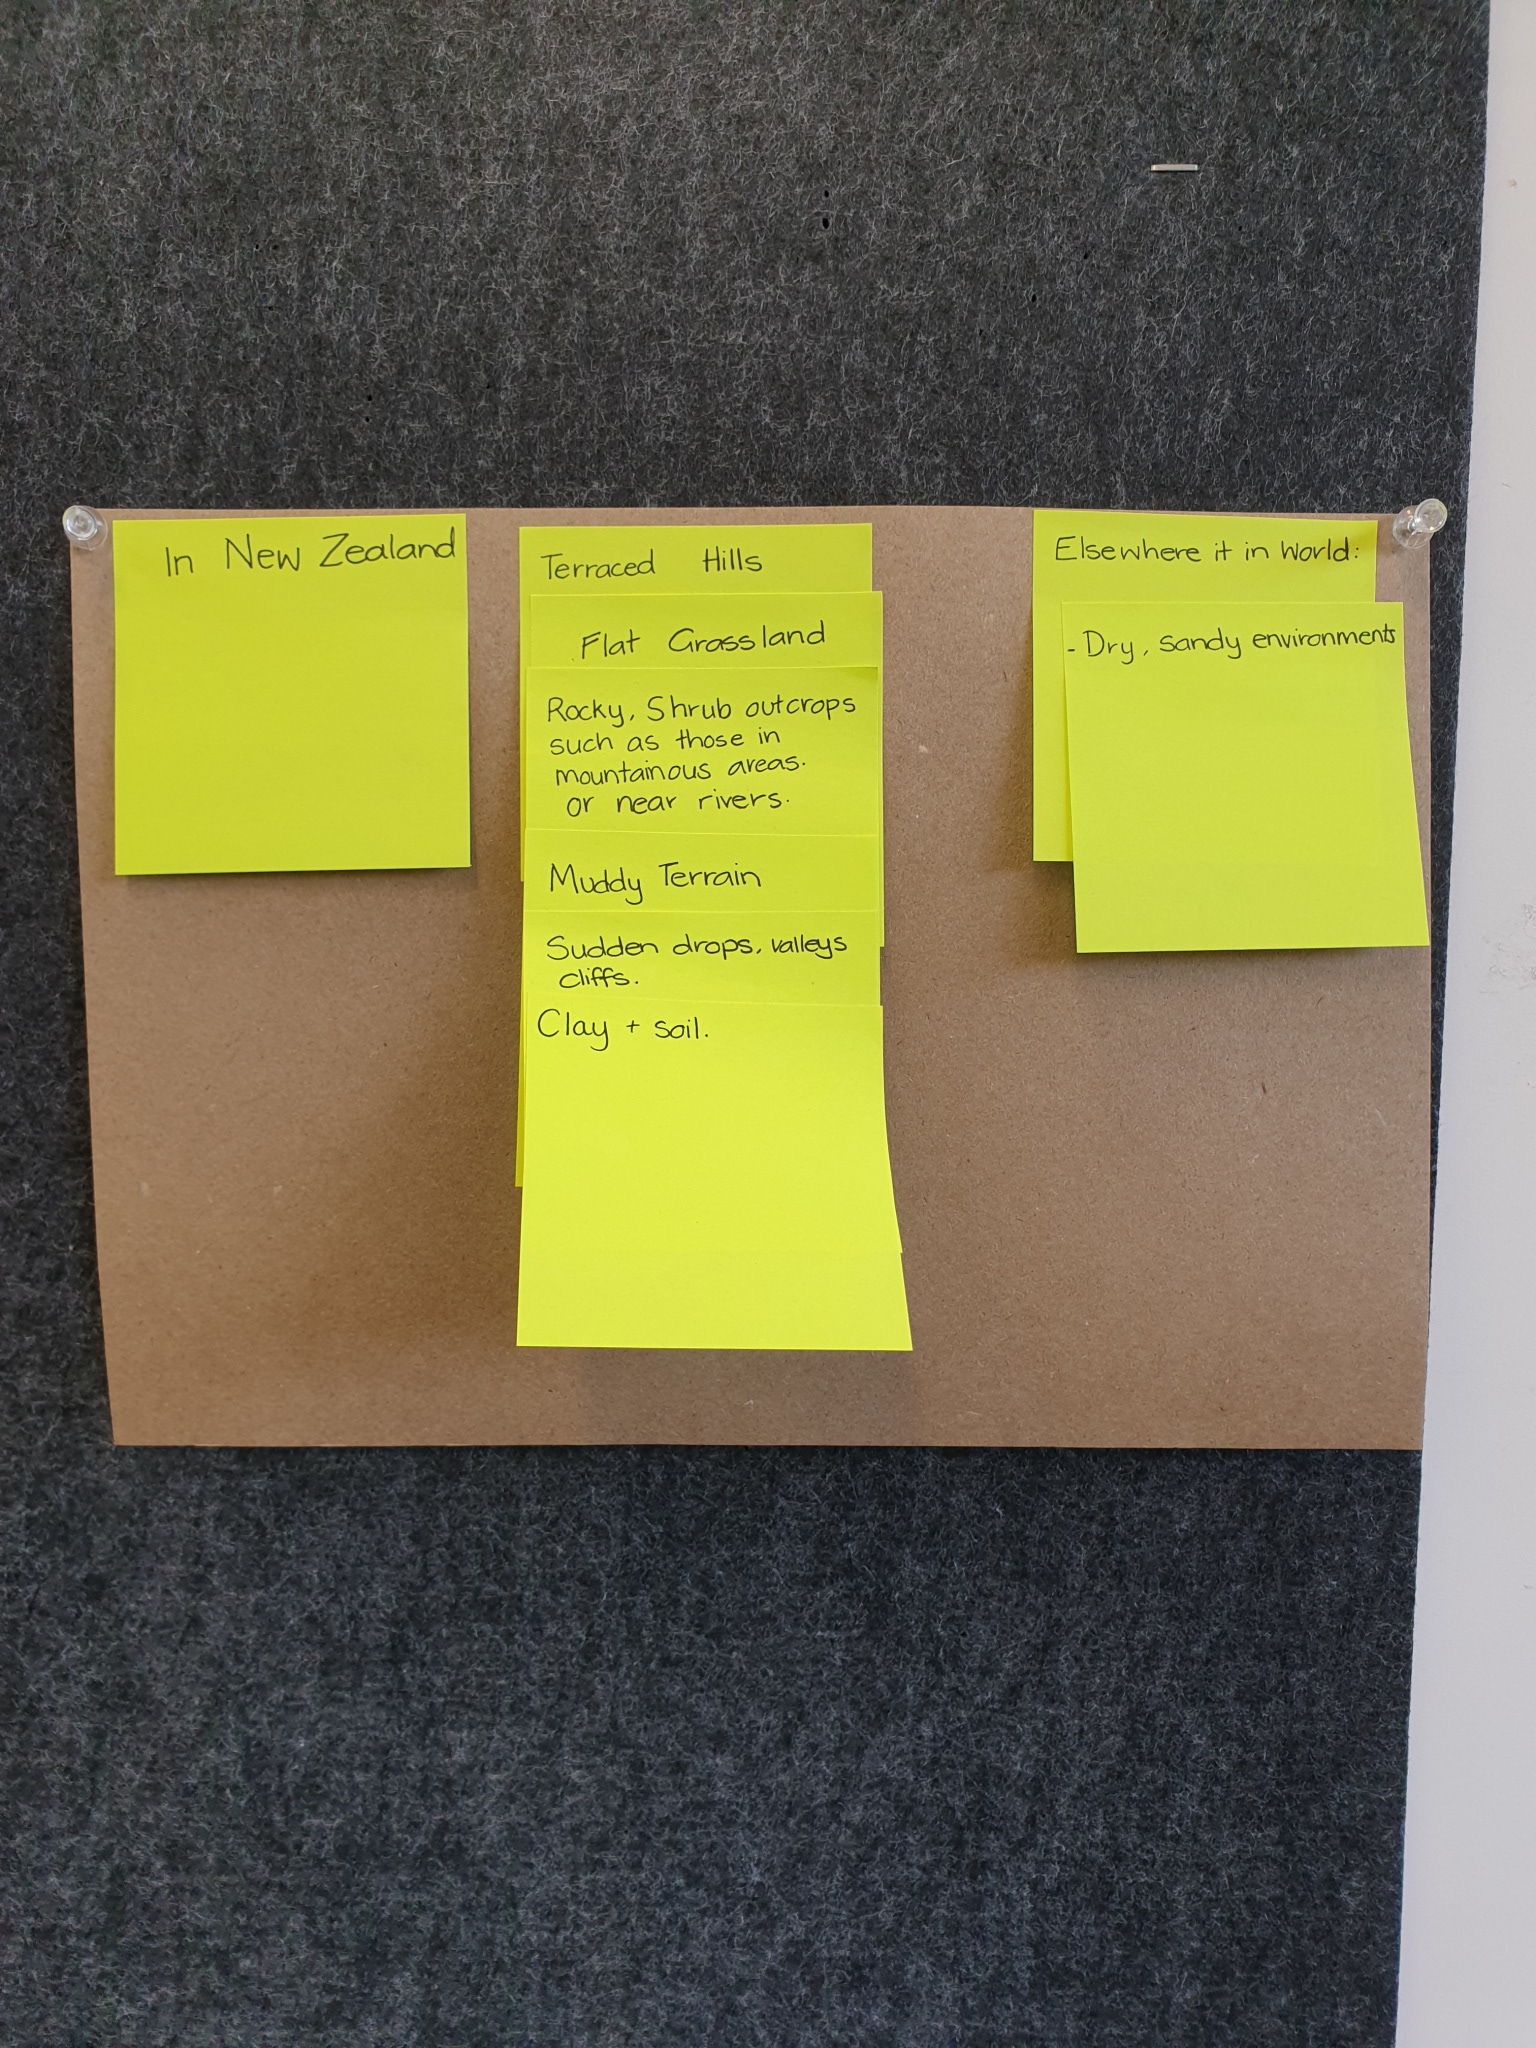 In New Zealand
Terraced Hills
Flat Grassland
Rocky, Shrub outcrops
such as those in
mountainous areas.
or near rivers.
Muddy Terrain
Sudden drops, valleys
cliffs.
Clay + soil.
Elsewhere it in World:
- Dry, sandy environments